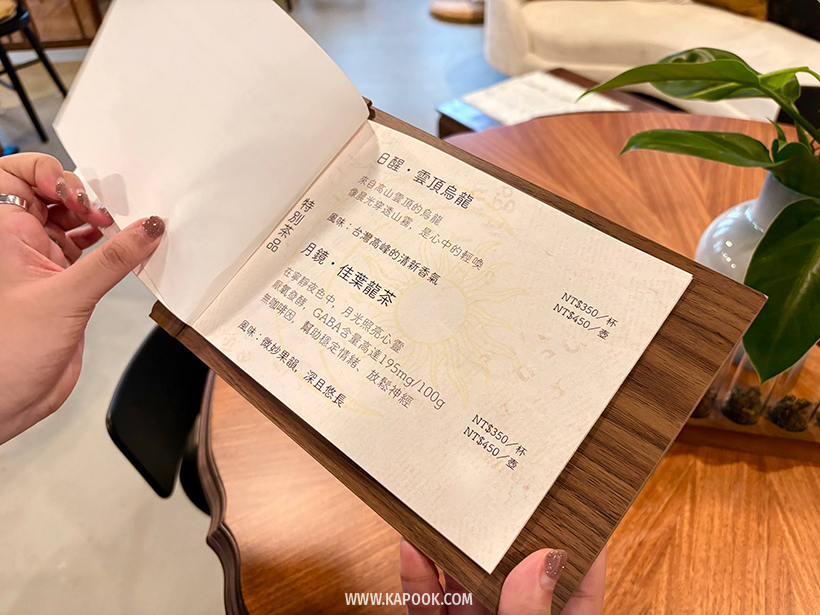 特別茶品
日醒・雲頂烏龍
來自高山雲頂的烏龍
像晨光穿透山靄，是心中的輕喚
風味：台灣高峰的清新香氣
NT$350／杯
NT$450／壺
月鏡・佳葉龍茶
在寧靜夜色中，月光照亮心靈
厭氧發酵，GABA含量高達195mg/100g
無咖啡因，幫助穩定情緒、放鬆神經
風味：微妙果韻，深且悠長
NT$350／杯
NT$450／壺
WWW.KAPOOK.COM